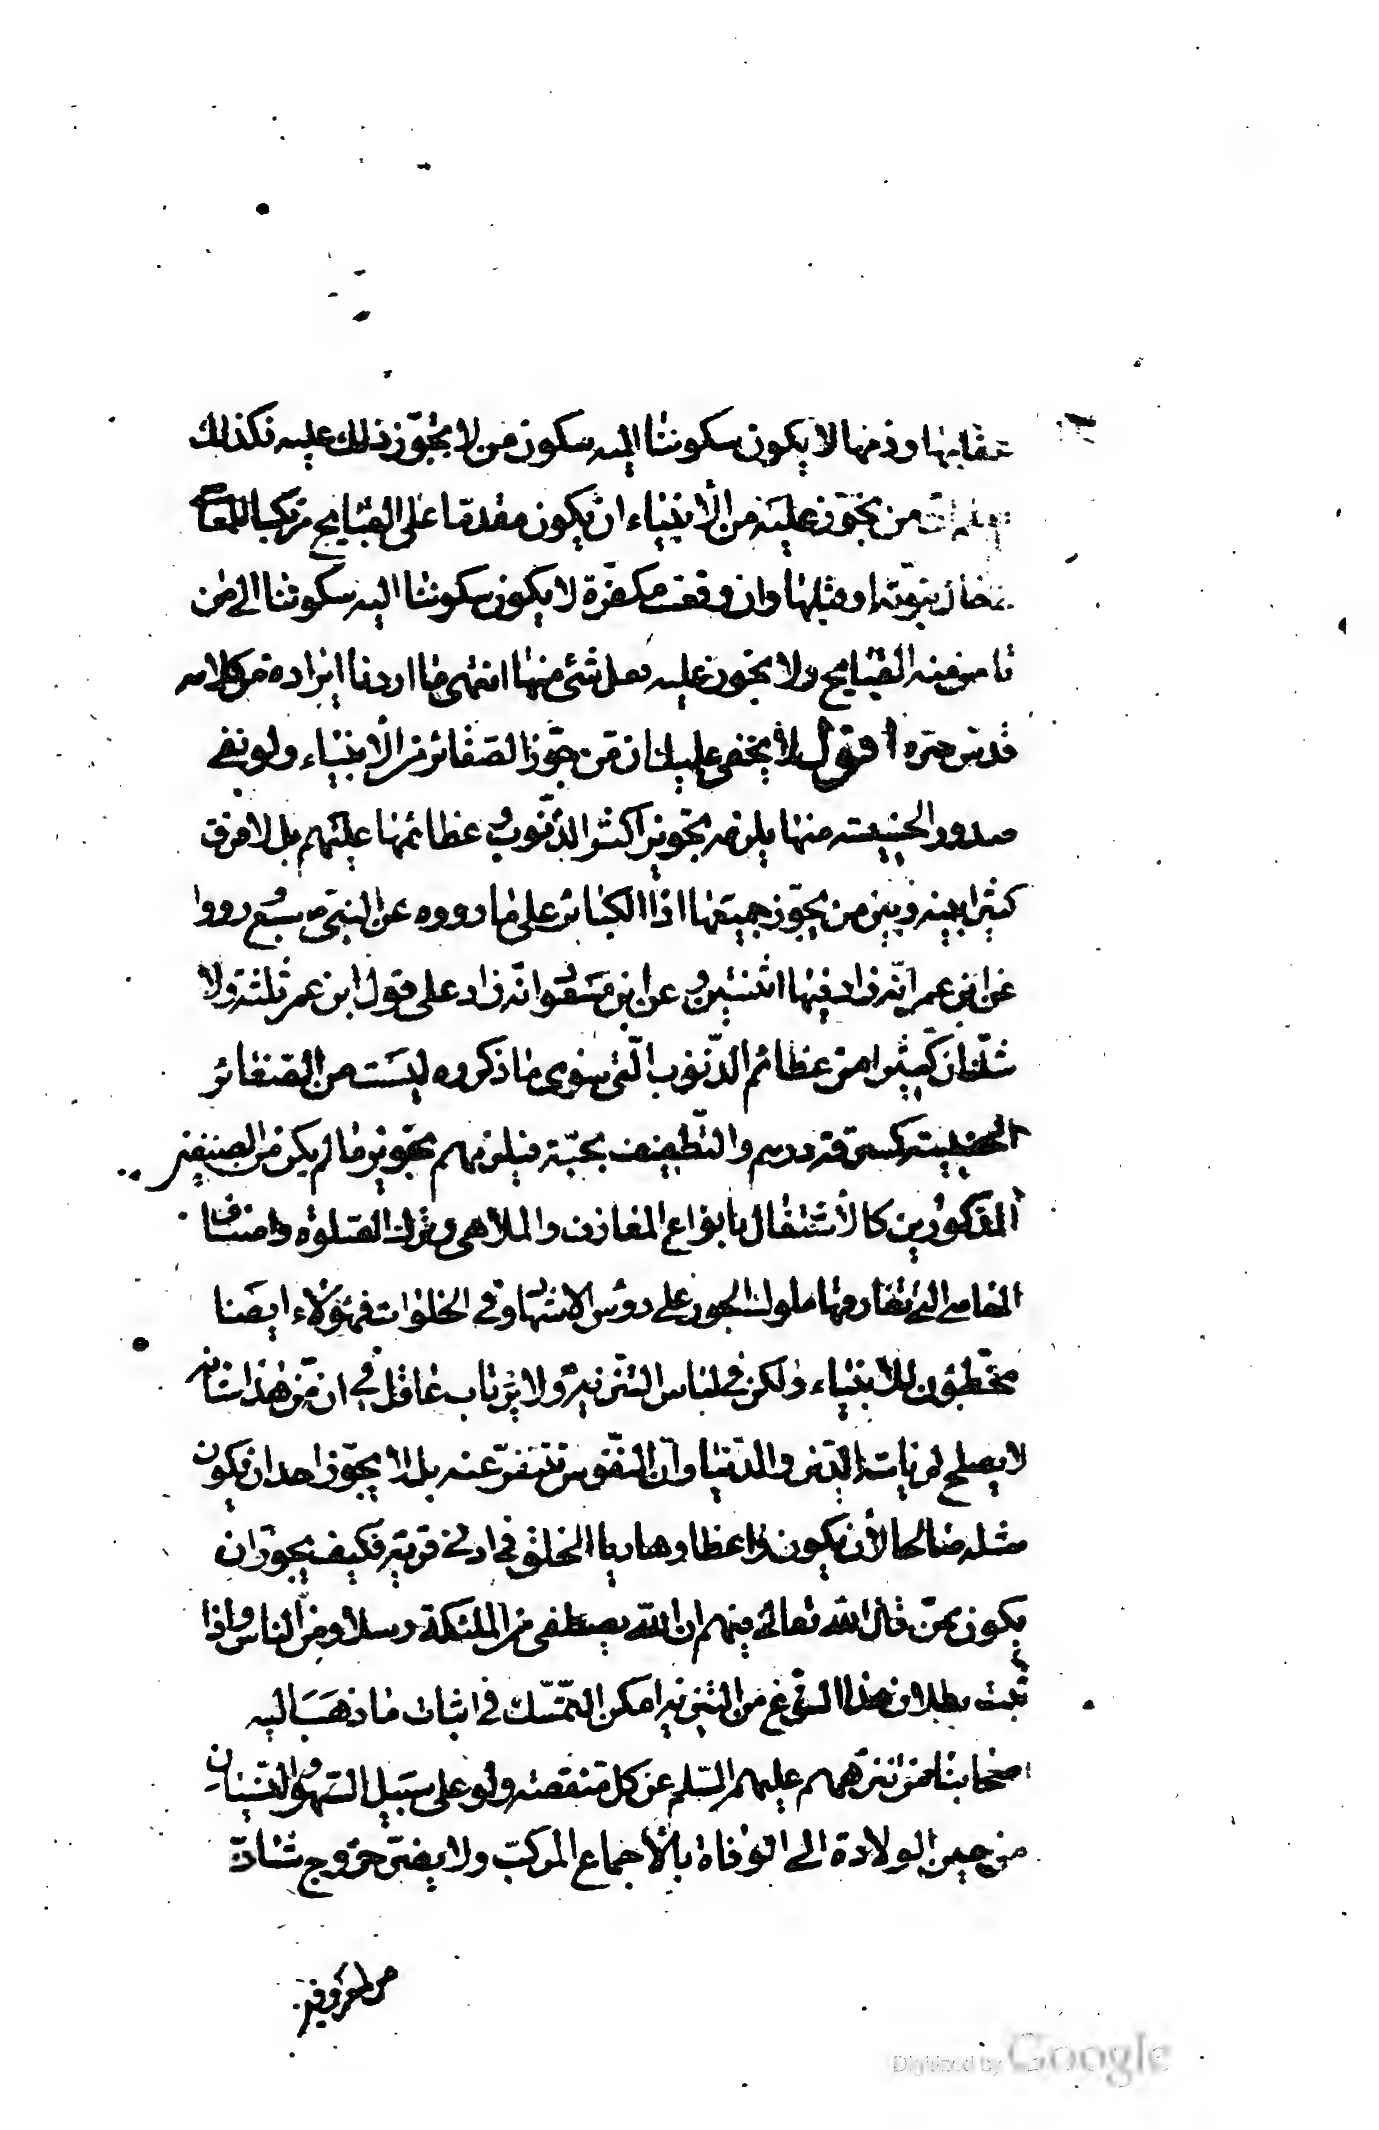 عقابها وذمها لا يكون سكوننا اليه سكون من لا يجوّز ذلك عليه فكذلك
من يجوّز عليه من الأنبياء ان يكون مقدما على القبايح مرتكبا للمعاصي
نبوّته او قبلها وان وقعت مكفّرة لا يكون سكوننا اليه سكوننا الى من
نامن منه القبايح ولا يجوز عليه فعل شئ منها انتهى ما اردنا ايراده من كلامه
قدس سره اقول لا يخفى عليك ان من جوّز الصغائر من الأنبياء ولو بنفى
صدور الخسيسة منها يلزمه تجويز اكثر الذّنوب وعظائمها عليهم بل لا فرق
كثيرا بينه وبين من يجوّز جميعها اذا الكبائر على ما رووه عن النبيّ ص سبع ورووا
عن ابن عمر انّه زاد فيها اثنتين وعن ابن مسعود انّه زاد على قول ابن عمر ثلثة ولا
شكّ ان كثيرا من عظائم الذّنوب الّتى سوى ما ذكروه ليست من الصغائر
الخسيسة كسرقة درهم والتّطفيف بحبّة فيلزمهم تجويز ما لم يكن من الصنفين
المذكورين كالأشتغال بانواع المعازف والملاهى وترك الصلوة واصناف
المعاصى التى تقارفها ملوك الجور على رؤس الاشهاد وفى الخلوات فهؤلاء ايضا
مخطّئون للانبياء ولكن فى لباس التنزيه ولا يرتاب عاقل فى ان من هذا شانه
لا يصلح لرياسة الدّين والدّنيا وانّ النّفوس تتنفّر عنه بل لا يجوّز احد ان يكون
مثله صالحا لأن يكون واعظا وهاديا للخلق فى ادنى قرية فكيف يجوز ان
يكون ممّن قال اللّه تعالى فيهم ان اللّه يصطفى من الملئكة رسلا ومن الناس واذا
ثبت بطلان هذا النوع من التنزيه امكن التمسّك فى اثبات ما ذهب اليه
اصحابنا من تنزّههم عليهم السّلم عن كل منقصة ولو على سبيل السّهو والنّسيان
من حين الولادة الى الوفاة بالأجماع المركّب ولا يضرّ خروج شاذّ
من المعروفين
Digitized by Google